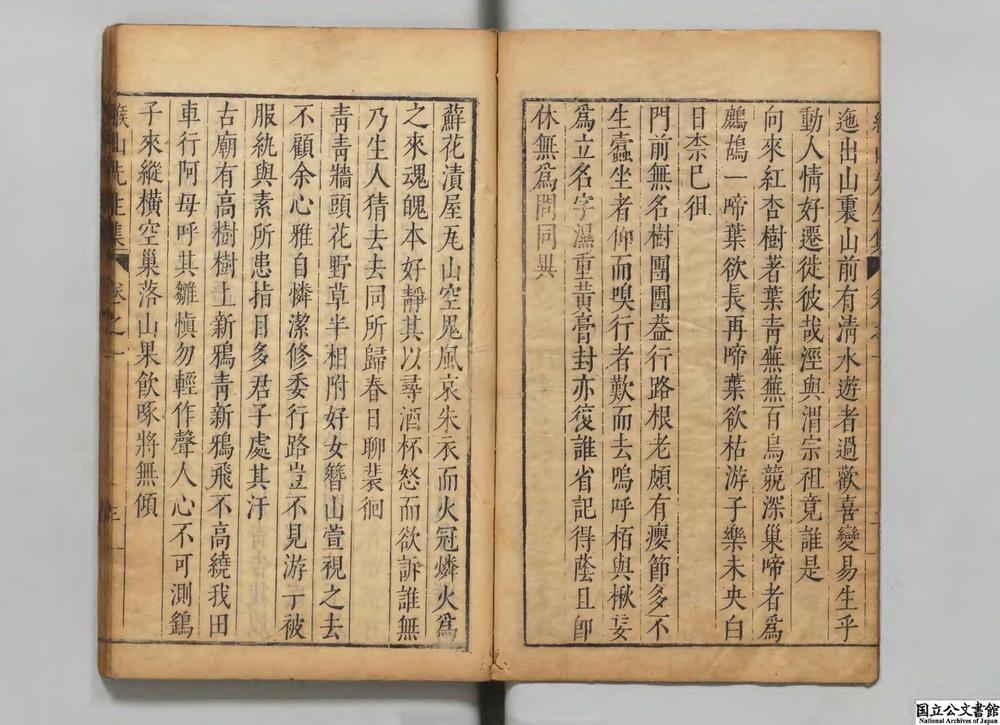 迤出山裏山前有清水遊者過歡喜變易生乎
動人情好遷徙彼哉涇與渭宗祖竟誰是
向來紅杏樹著葉青蕪蕪百鳥競深巢啼者爲
鷓鴣一啼葉欲長再啼葉欲枯游子樂未央白
日柰已徂
門前無名樹團團葢行路根老頗有癭節多不
生蠹坐者仰而嗅行者歎而去嗚呼栢與楸妄
爲立名字濕重黄膏封亦復誰省記得蔭且卽
休無爲問同異
蘚花漬屋瓦山空鬼風哀朱衣而火冠燐火爲
之來魂魄本好靜其以尋酒杯怒而欲訴誰無
乃生人猜去去同所歸春日聊裴徊
靑靑牆頭花野草半相附好女簪山萱視之去
不顧余心雅自憐潔修委行路豈不見游子被
服紈與素所患指目多君子處其汙
古廟有高樹樹上新鴉靑新鴉飛不高繞我田
車行阿母呼其雛愼勿輕作聲人心不可測鷂
子來縱橫空巢落山果飮啄將無傾
山先生集 卷之一